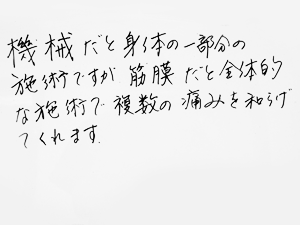 機械だと身体の一部分の
施術ですが筋膜だと全体的
な施術で複数の痛みを和らげ
てくれます.